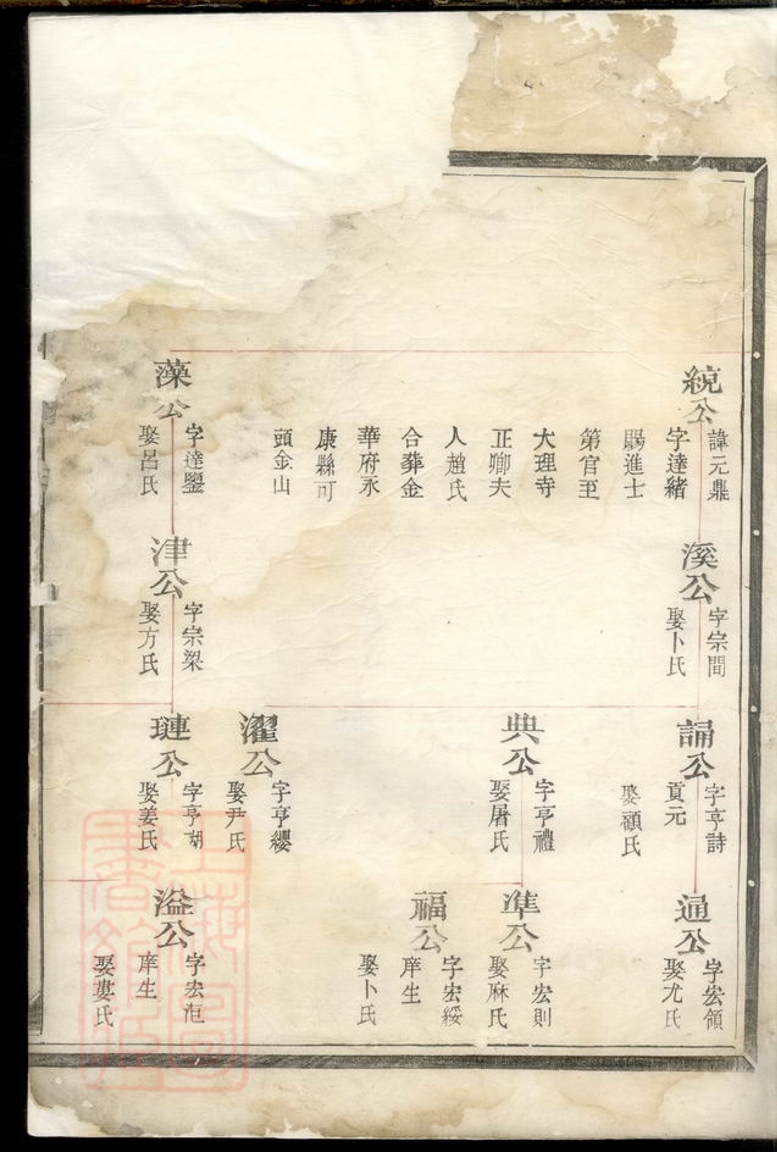 統公
諱元鼎
字達緒
賜進士
第官至
大理寺
正卿夫
人趙氏
合葬金
華府永
康縣可
頭金山
藻公
字達鑒
娶呂氏
溪公
字宗間
娶卜氏
津公
字宗梁
娶方氏
誦公
字亨詩
貢元
娶顧氏
典公
字亨禮
娶屠氏
濯公
字亨纓
娶尹氏
璉公
字亨瑚
娶姜氏
通公
字宏領
娶尤氏
準公
字宏則
娶麻氏
福公
字宏綏
庠生
娶卜氏
溢公
字宏洹
庠生
娶婁氏
上海圖書館藏